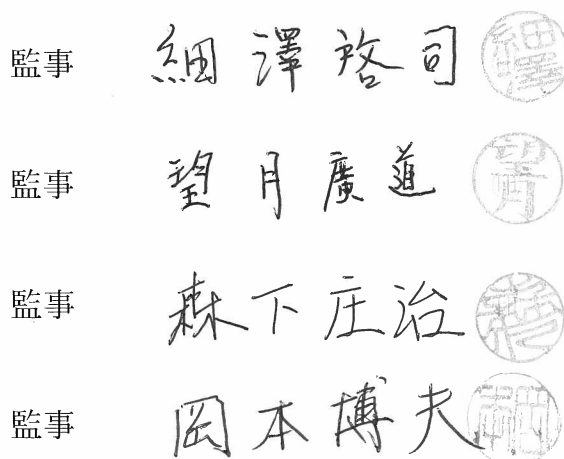 監事 細澤啓司 細澤
監事 望月廣道 望月
監事 森下庄治
監事 岡本博夫 岡本